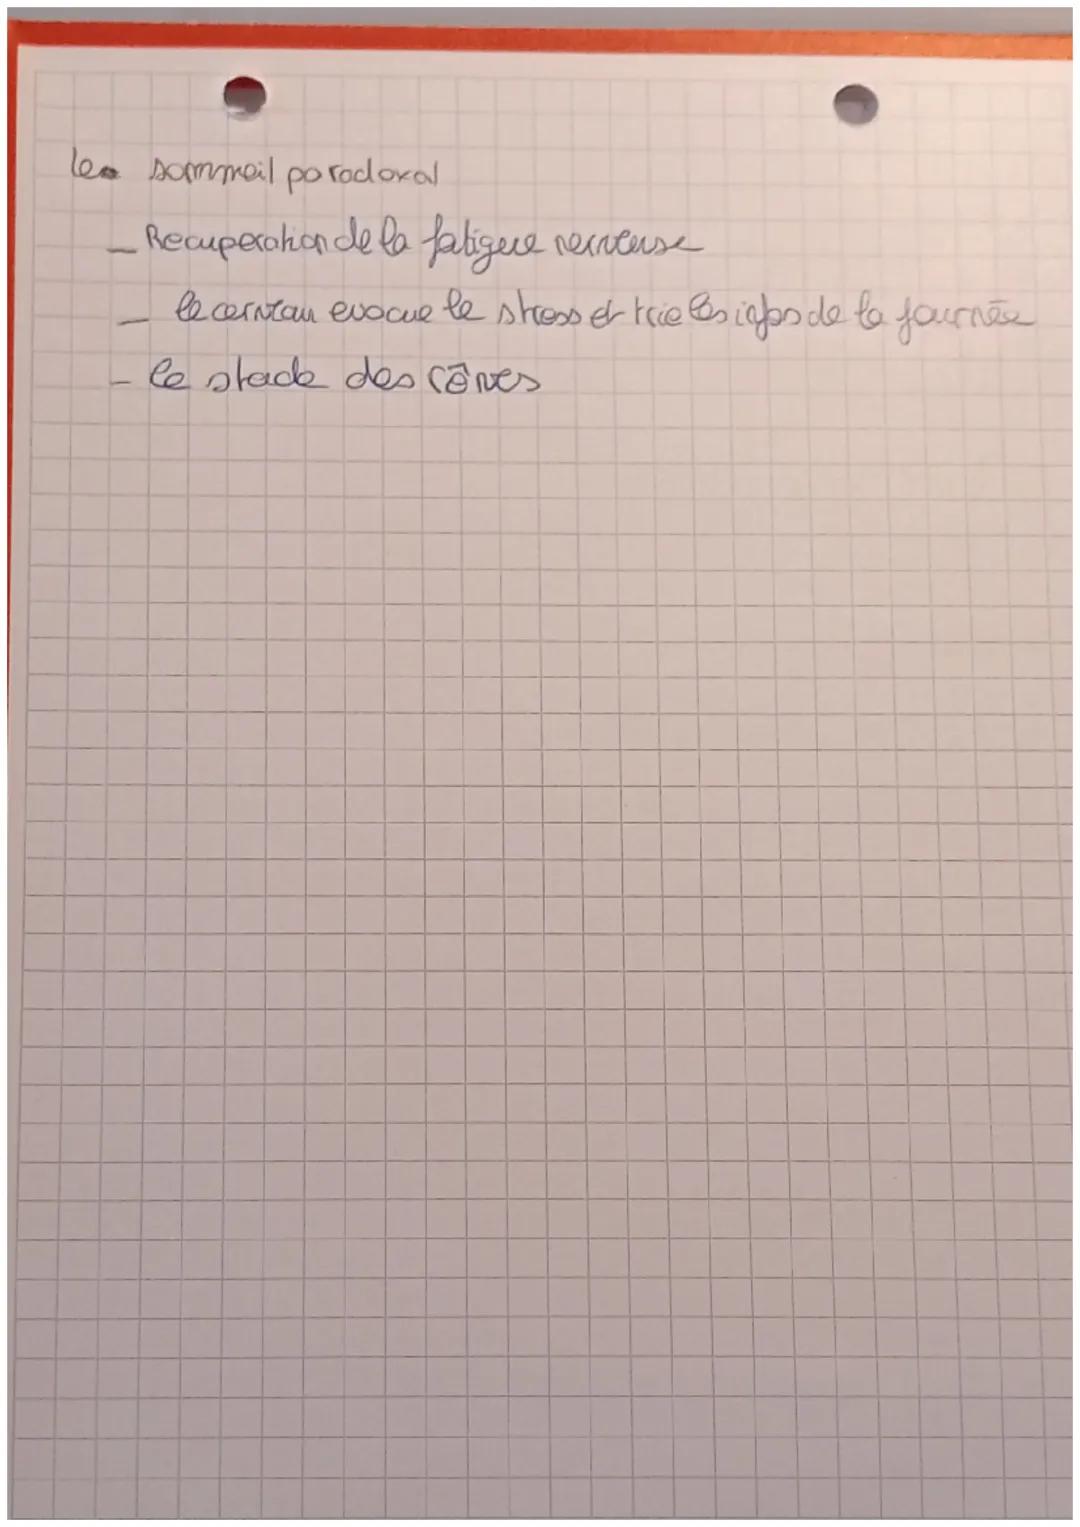 le sommeil paradoxal
- Recuperation de la fatigue nerveuse
- le cerveau evacue le stress et trie les infos de la journée
- le stade des rêves